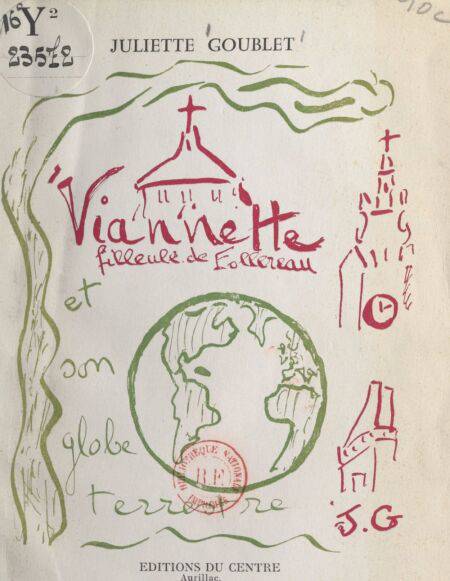 16° Y²
23572
JULIETTE GOUBLET
Viannette
filleule de Follereau
et
son
globe
terrestre
BIBLIOTHÈQUE NATIONALE
B.F.
IMPRIMÉS
J.G
EDITIONS DU CENTRE
Aurillac.